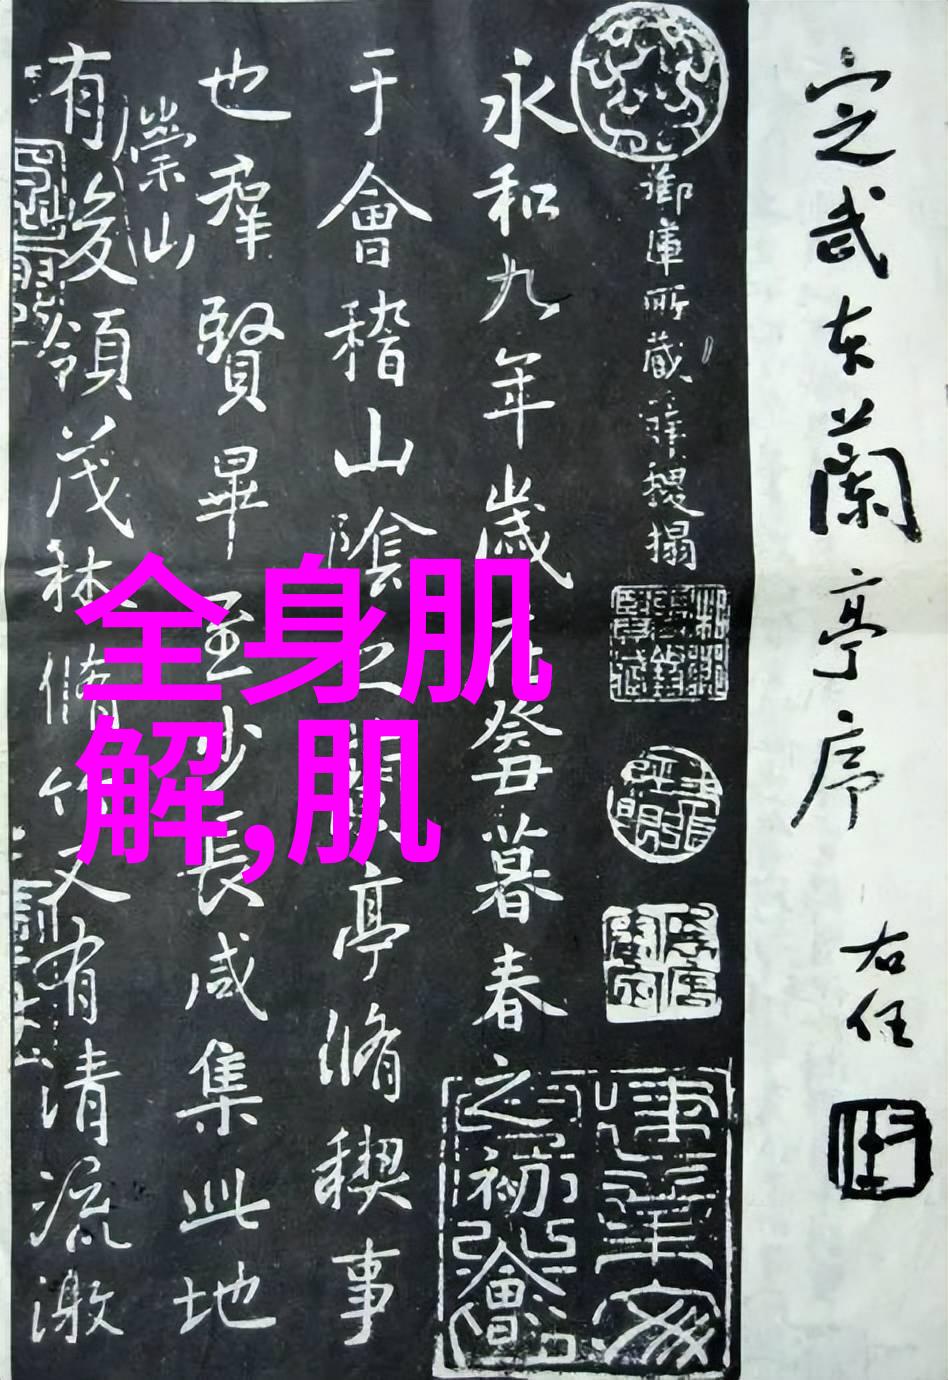 定武本蘭亭序
右任
御庫所藏薛稷搨
永和九年歲在癸丑暮春之初會
于會稽山陰之蘭亭脩禊事
也羣賢畢至少長咸集此地
崇山
有峻領茂林脩竹又有清流激
全身肌
解,肌